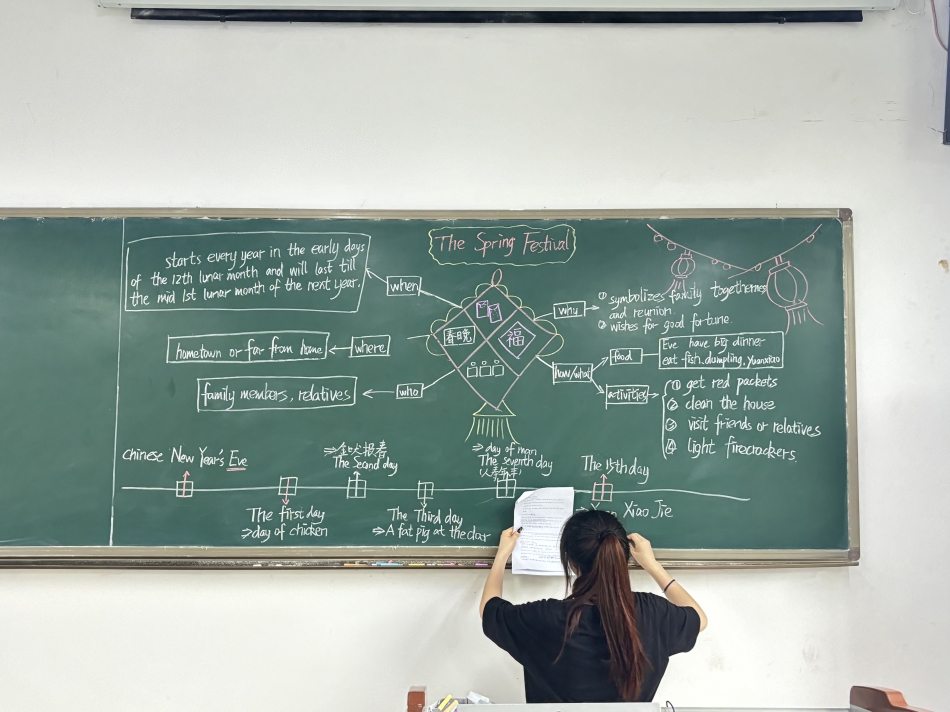 The Spring Festival
starts every year in the early days
of the 12th lunar month and will last till
the mid 1st lunar month of the next year.
when
hometown or far from home
where
family members, relatives
who
春晚
福
why
① symbolizes family togetherness
and reunion.
② wishes for good fortune.
how/what
food
Eve have big dinner
eat fish, dumpling, Yuanxiao
activities
① get red packets
② clean the house
③ visit friends or relatives
④ light firecrackers.
Chinese New Year's Eve
The first day
⇒day of chicken
⇒金犬报春
The Second day
The Third day
⇒A fat pig at the door
⇒ day of man
The seventh day
The 15th day
Xiao Jie